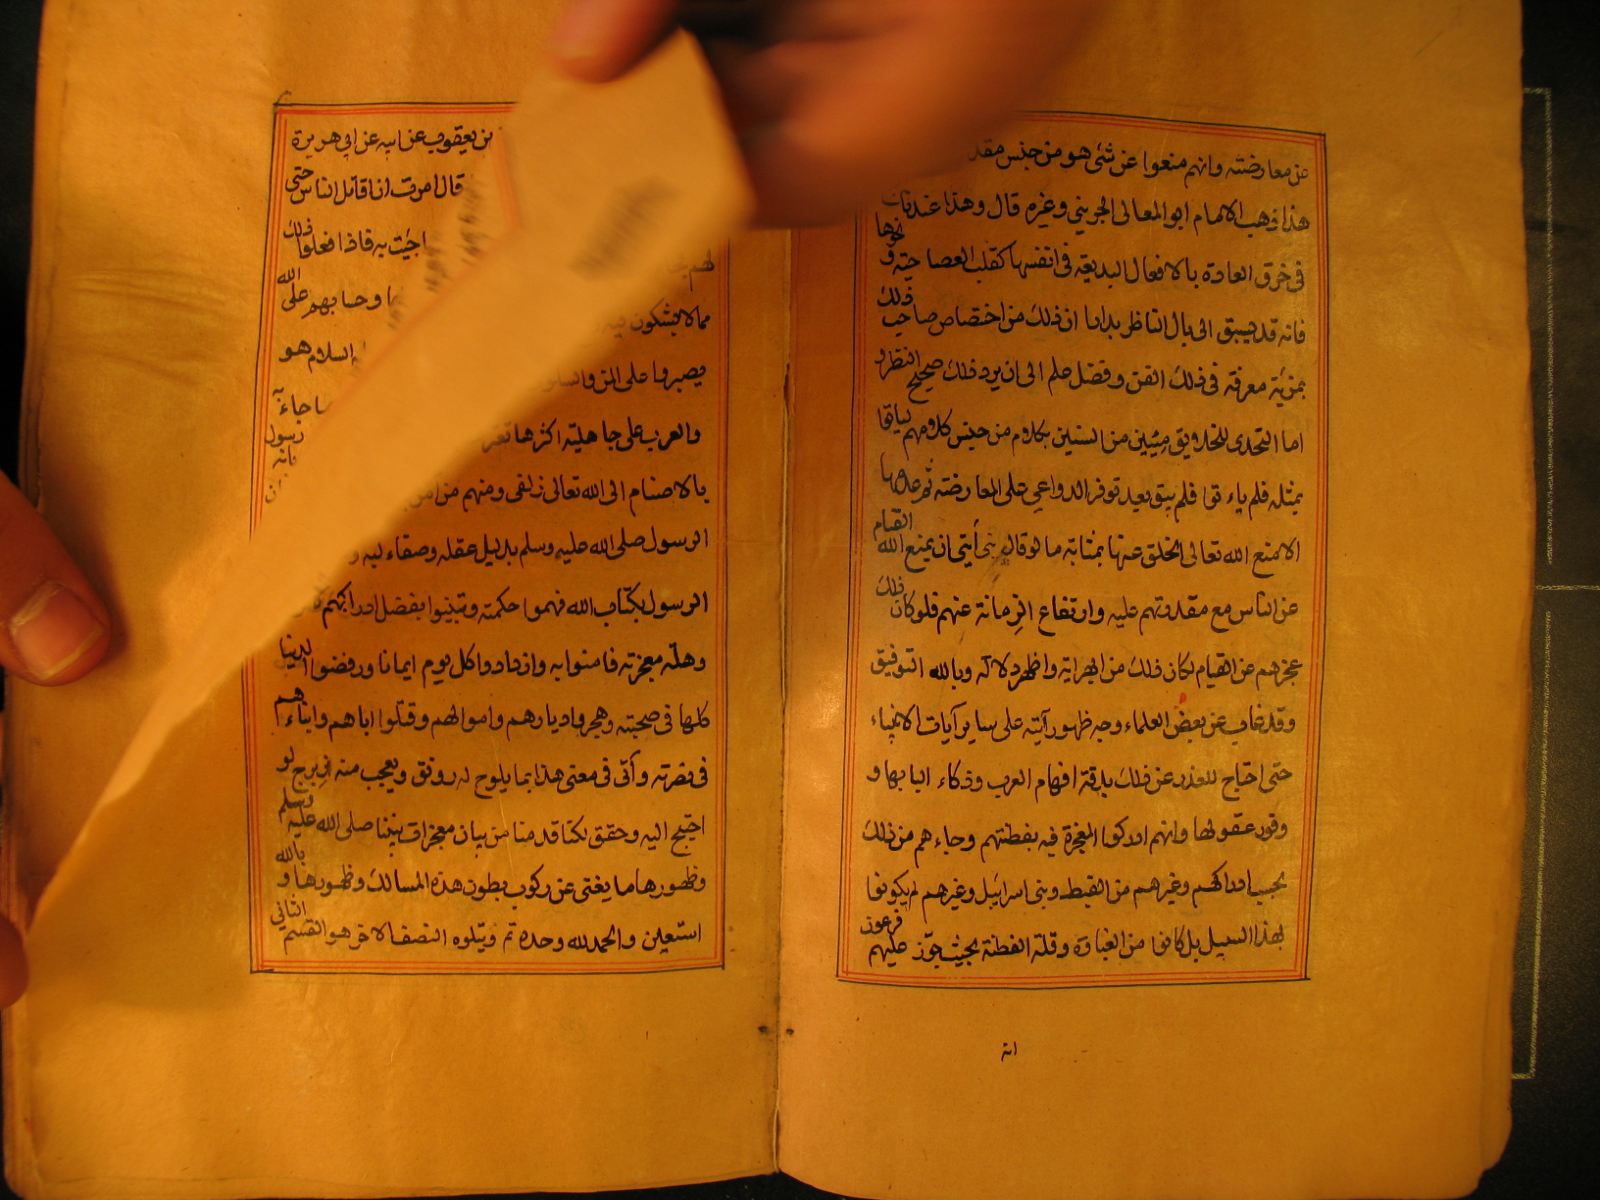 عن معارضته وانهم منعوا عن شئ هو من جنس مقد
هذا ذهب الامام ابو المعالى الجوينى وغيره قال وهذا عندنا
فى خرق العادة بالافعال البديعة فى انفسها كقلب العصا حية و نحوها
فانه قد يسبق الى بال الناظر بدارا ان ذلك من اختصاص صاحب ذلك
بمزية معرفة فى ذلك الفن وفضل علم الى ان يرد ذلك صحيح النظر و
اما التحدى للخلايق مئين من السنين بكلام من جنس كلامهم لياتوا
بمثله فلم ياءتوا فلم يبق بعد توفر الدواعى على المعارضة ثم عدمها
الا منع الله تعالى الخلق عنها بمثابة ما لو قال نبى أيتى ان يمنع الله القيام
عن الناس مع مقدرتهم عليه وارتفاع الزمانة عنهم فلو كان ذلك
عجزهم عن القيام لكان ذلك من ابهر اية واظهر دلالة وبالله التوفيق
وقد غاب عن بعض العلماء وجه ظهور آيته على ساير آيات الانبياء
حتى احتاج للعذر عن ذلك بدقة افهام العرب وذكاء البابها و
وفور عقولها وانهم ادركوا المعجزة فيه بفطنتهم وجاءهم من ذلك
بحسب ادراكهم وغيرهم من القبط وبنى اسرائيل وغيرهم لم يكونوا
بهذا السبيل بل كانوا من الغباوة وقلة الفطنة بحيث جوز عليهم فرعون
انه
بن يعقوب عن ابيه عن ابى هريرة
قال امرت ان اقاتل الناس حتى
جيت به فاذا فعلوا ذلك
وحسابهم على الله
السلام هو
ما جاء
رسول
لهم
مما لا يشكون فيه
يصبروا على المن والسلوى
والعرب على جاهلية اكثرها
بالاصنام الى الله تعالى زلفى ومنهم من امن
الرسول صلى الله عليه وسلم بدليل عقله وصفاء لبه و
الرسول بكتاب الله فهموا حكمته وتبينوا بفضل ادراكهم
وهلة معجزته فامنوا به وازدادوا كل يوم ايمانا ورفضوا الدنيا
كلها فى صحبته وهجروا ديارهم واموالهم وقتلوا اباهم وابناءهم
فى نصرته وأتى فى معنى هذا بما يلوح له رونق ويعجب منه زبرج لو
احتيج اليه وحقق لكنا قدمنا من بيان معجزات نبينا صلى الله عليه وسلم
وظهورها ما يغنى عن ركوب بطون هذه المسالك وظهورها و بالله
استعين والحمد لله وحده تم ويتلوه النصف الاخر هو القسم الثانى